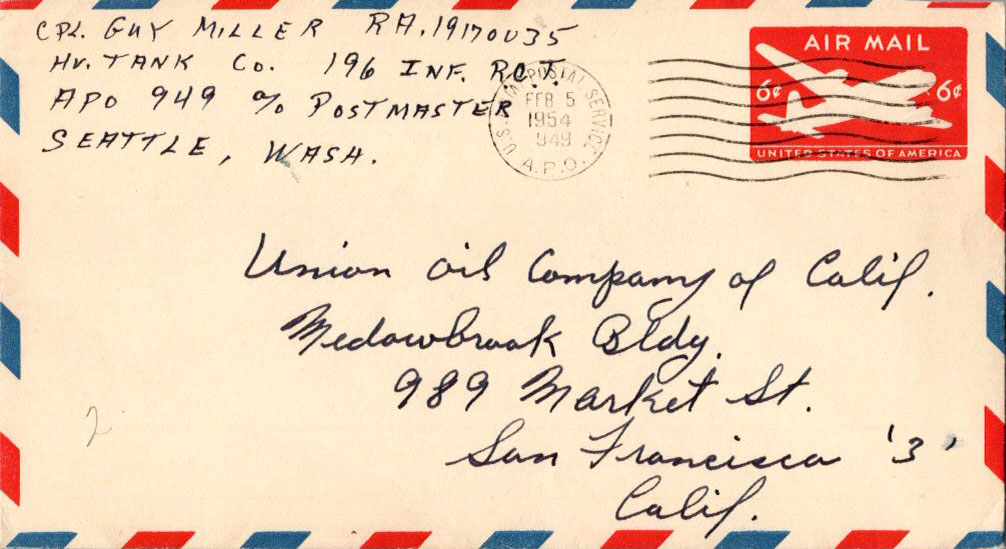 CPL. GUY MILLER RA.19170035
HV. TANK Co. 196 INF. R.C.T.
APO 949 % POSTMASTER
SEATTLE, WASH.
U.S. ARMY POSTAL SERVICE
FEB 5
1954
949
A.P.O.
AIR MAIL
6¢ 6¢
UNITED STATES OF AMERICA
Union Oil Company of Calif.
Medowbrook Bldg.
989 Market St.
San Francisco '3'
Calif.
2